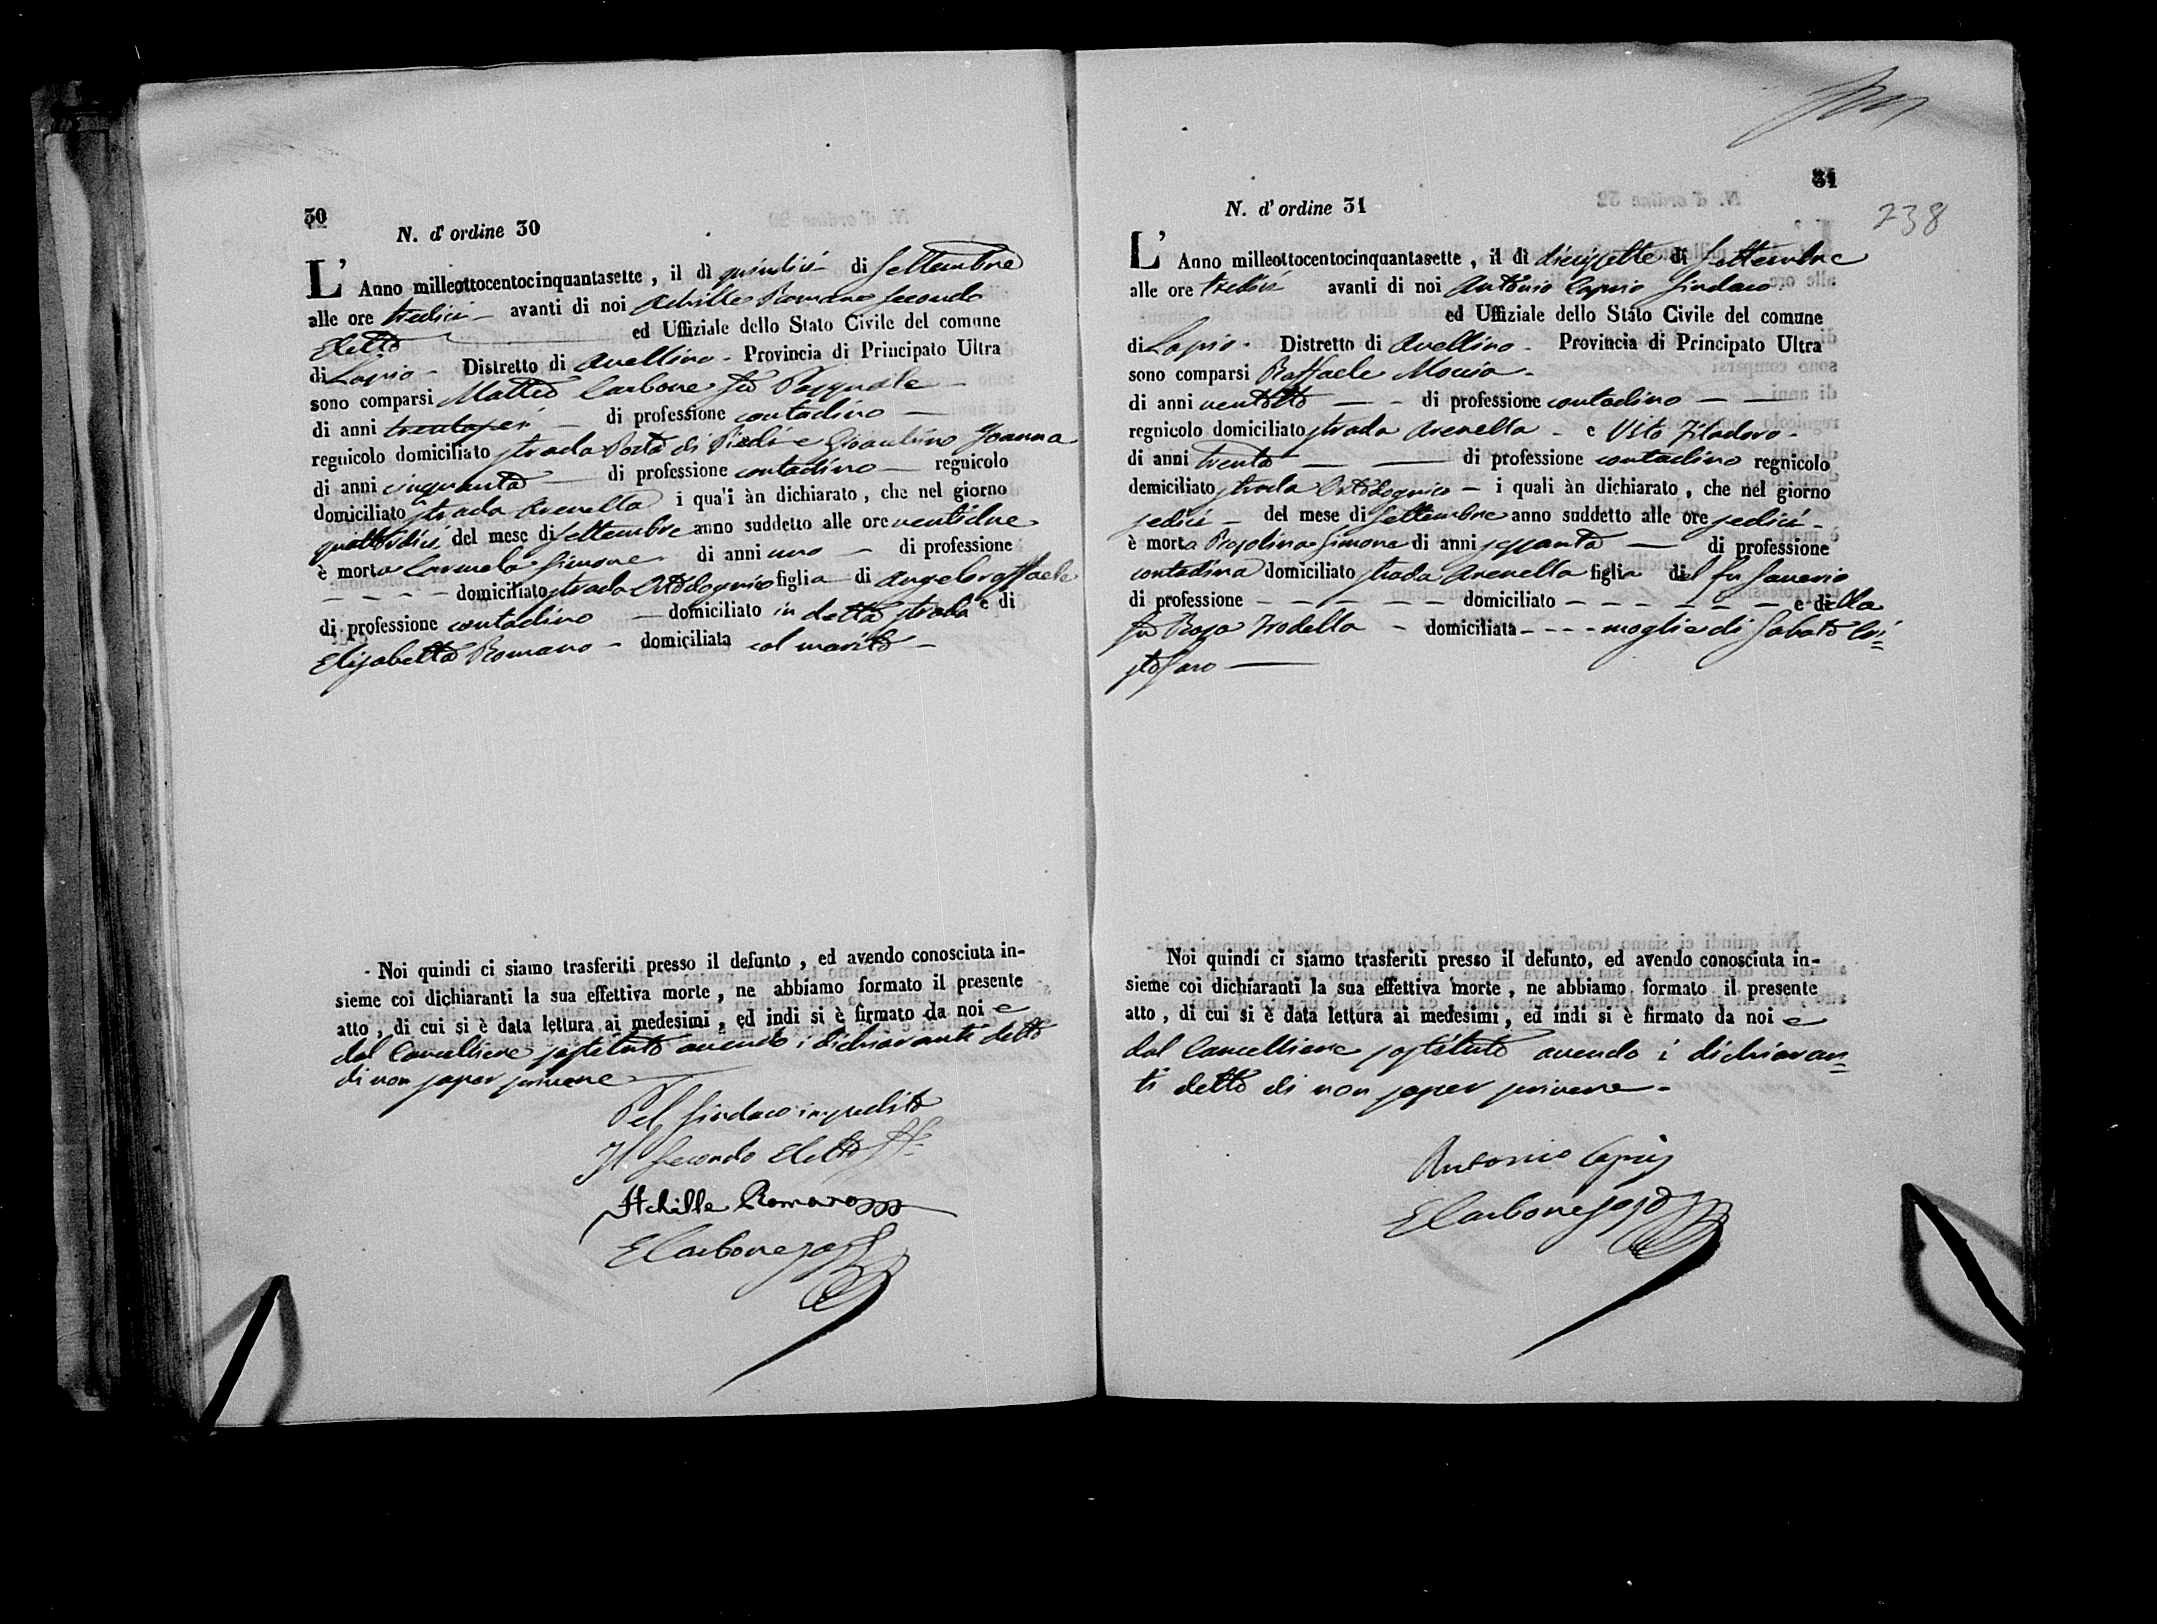 30
N. d'ordine 30
L'Anno milleottocentocinquantasette, il dì quindici di Settembre
alle ore tredici - avanti di noi Achille Romano Secondo
Eletto ed Uffiziale dello Stato Civile del comune
di Lapio - Distretto di Avellino - Provincia di Principato Ultra
sono comparsi Matteo Carbone fu Pasquale -
di anni trentasei - di professione contadino -
regnicolo domiciliato strada Porta di Piedi e Gioacchino Joanna
di anni cinquanta - di professione contadino - regnicolo
domiciliato strada Arenella i qua'i àn dichiarato, che nel giorno
quattordici del mese di Settembre anno suddetto alle ore ventidue
è morta Carmela Simone di anni uno - di professione
- - - - domiciliato strada Ortodognico figlia di Angeloraffaele
di professione contadino - domiciliato in detta strada e di
Elisabetta Romano - domiciliata col marito -
- Noi quindi ci siamo trasferiti presso il defunto, ed avendo conosciuta in-
sieme coi dichiaranti la sua effettiva morte, ne abbiamo formato il presente
atto, di cui si è data lettura ai medesimi, ed indi si è firmato da noi e
dal Cancelliere sostituto avendo i dichiaranti detto
di non saper scrivere
Pel Sindaco impedito
Il Secondo Eletto
Achille Romano
E Carbone sosto
31
738
N. d'ordine 31
L'Anno milleottocentocinquantasette, il dì diecissette di Settembre
alle ore tredici avanti di noi Antonio Caprio Sindaco
ed Uffiziale dello Stato Civile del comune
di Lapio - Distretto di Avellino - Provincia di Principato Ultra
sono comparsi Raffaele Moccia -
di anni ventotto - - di professione contadino - -
regnicolo domiciliato strada Arenella - e Vito Filadoro -
di anni trenta - - di professione contadino regnicolo
demiciliato strada Ortodognico - i quali àn dichiarato, che nel giorno
sedici - del mese di Settembre anno suddetto alle ore sedici -
è morta Rosolina Simone di anni sessanta - di professione
contadina domiciliato strada Arenella figlia del fu Saverio
di professione - - - - - domiciliato - - - - - - e della
fu Rosa Trodella - domiciliata - - - moglie di Sabato Cri=
stofaro -
Noi quindi ci siamo trasferiti presso il defunto, ed avendo conosciuta in-
sieme coi dichiaranti la sua effettiva morte, ne abbiamo formato il presente
atto, di cui si è data lettura ai medesimi, ed indi si è firmato da noi e
dal Cancelliere sostituto avendo i dichiaran=
ti detto di non saper scrivere -
Antonio Caprio
E Carbone sosto